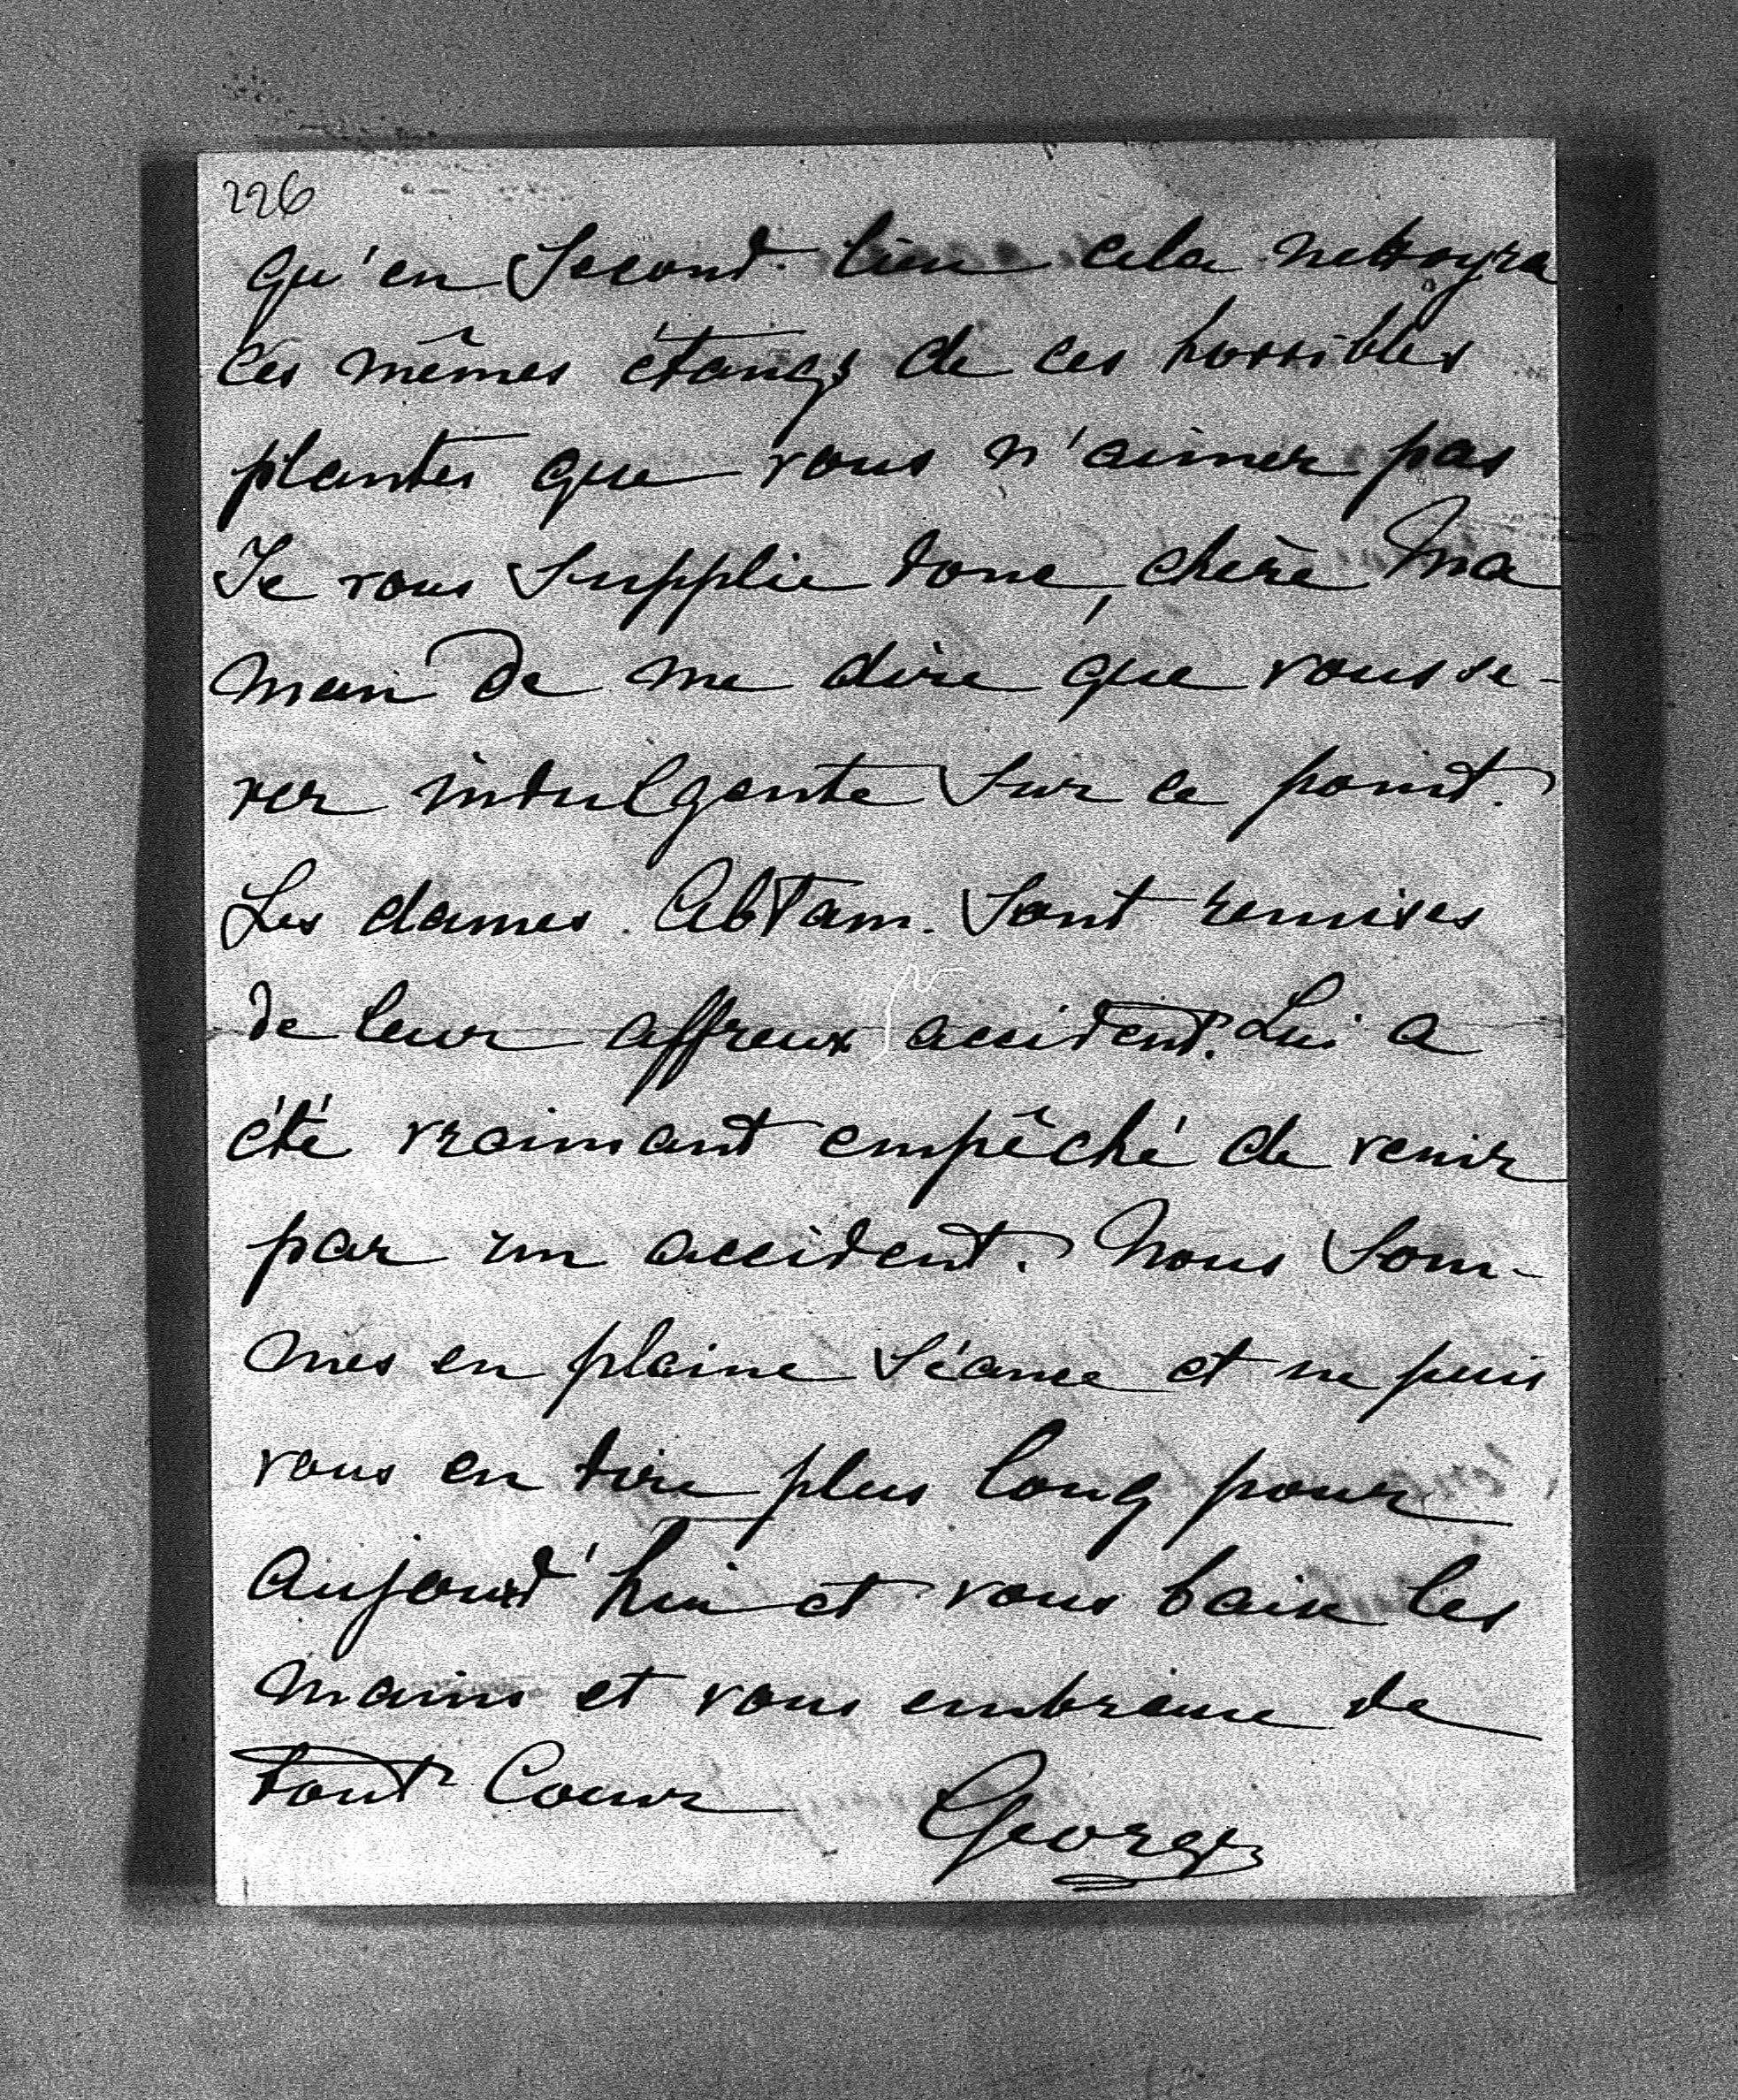 226
qu'en second lieu cela nettoyra
ces mêmes étangs de ces horribles
plantes que vous n'aimez pas
Je vous supplie donc, chère Ma
man de me dire que vous se-
rez indulgente sur ce point.
Les dames Abtam. sont remises
de leur affreux accident. Lui a
été vraimant empêché de venir
par un accident. Nous som-
mes en plaine séance et ne puis
vous en dire plus long pour
aujourd'hui et vous baise les
mains et vous embrasse de
tout Coeur Georges